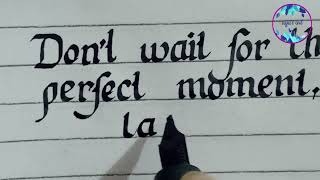 Don't wait for th
perfect moment,
ta